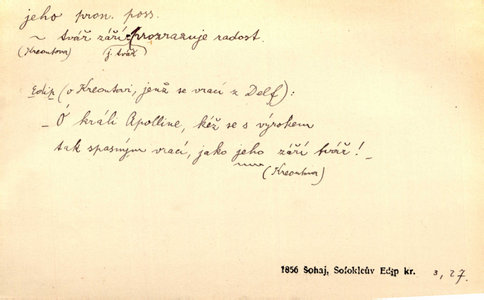 jeho pron. poss.
~ tvář září prozrazuje radost.
(Kreontova) (j. tvář
Edip (o Kreontovi, jenž se vrací z Delf):
– Ó králi Apolline, kéž se s výrokem
tak spasným vrací, jako jeho září tvář! –
(Kreontova)
1856 Šohaj, Sofokleův Edip kr. 3, 27.